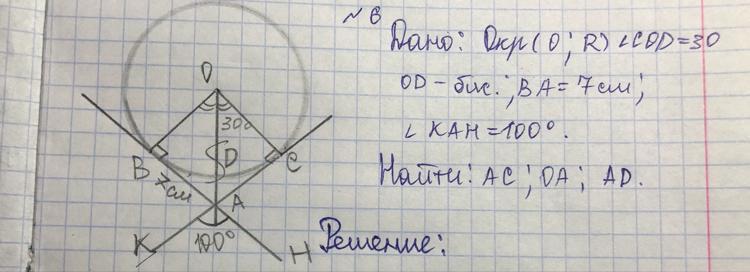 №6
Дано: Окр(O; R) ∠COD=30
OD – бис.; BA = 7см;
∠ KAH = 100°.
Найти: AC; OA; AD.
Решение:
O
30°
B
D
C
7см
A
K
100°
H